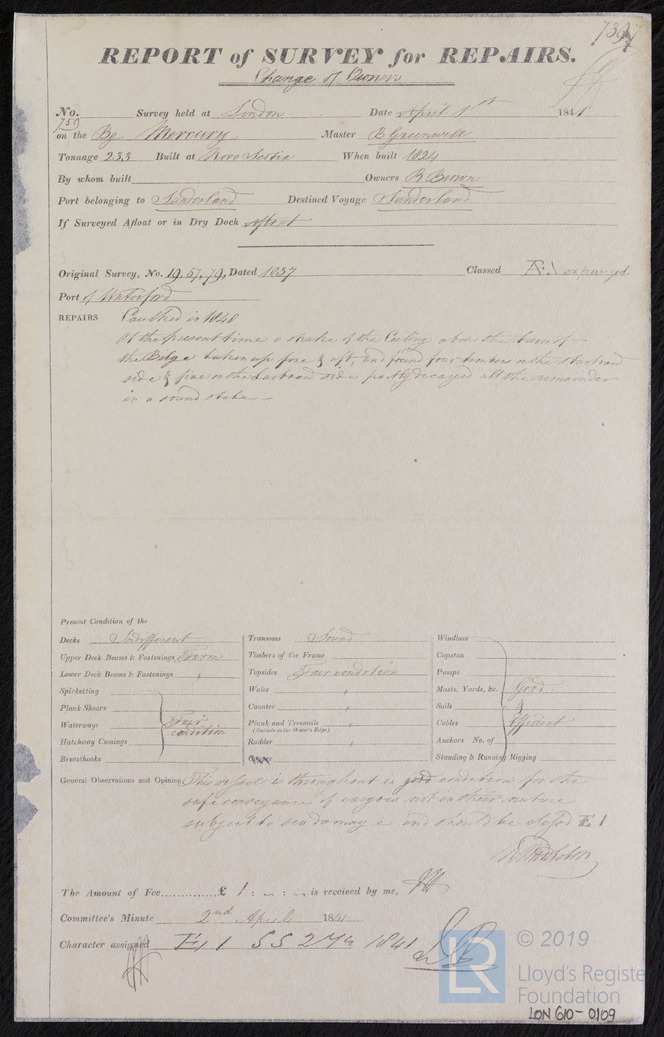 7397
REPORT of SURVEY for REPAIRS.
Change of Owners
No. 759 Survey held at London Date April 1st 1841
on the Bg Mercury Master B Greenwell
Tonnage 233 Built at Nova Scotia When built 1824
By whom built Owners R Brown
Port belonging to Sunderland Destined Voyage Sunderland
If Surveyed Afloat or in Dry Dock Afloat
Original Survey, No. 19,67,79, Dated 1837 Classed Æ.1 expunged
Port of Waterford
REPAIRS Caulked in 1840
At the present time a strake of the Ceiling above the turn of
the Bilge taken up fore & aft, and found four timbers on the starboard
side & five on the Larboard side partly decayed all the remainder
in a sound state
Present Condition of the
Decks Indifferent
Upper Deck Beams & Fastenings Firm
Lower Deck Beams & Fastenings "
Spirketting
Plank Shears
Waterways Fair condition
Hatchway Comings
Breasthooks
Transoms Sound
Timbers of the Frame
Topsides Fair condition
Wales "
Counter "
Plank and Treenails "
(Outside to the Water's Edge)
Rudder "
Windlass
Capstan
Pumps
Masts, Yards, &c. Good
Sails &
Cables Efficient
Anchors No. of
Standing & Running Rigging
General Observations and Opinion This vessel is throughout in good condition for the
safe conveyance of cargoes not in their nature
subject to sea damage and should be classed Æ 1
The Amount of Fee............£ 1 : – : – is received by me,
Committee's Minute 2nd April 1841
Character assigned Æ 1 SS 2 Ms 1841
© 2019
LR
Lloyd's Register
Foundation
LON 610-0109